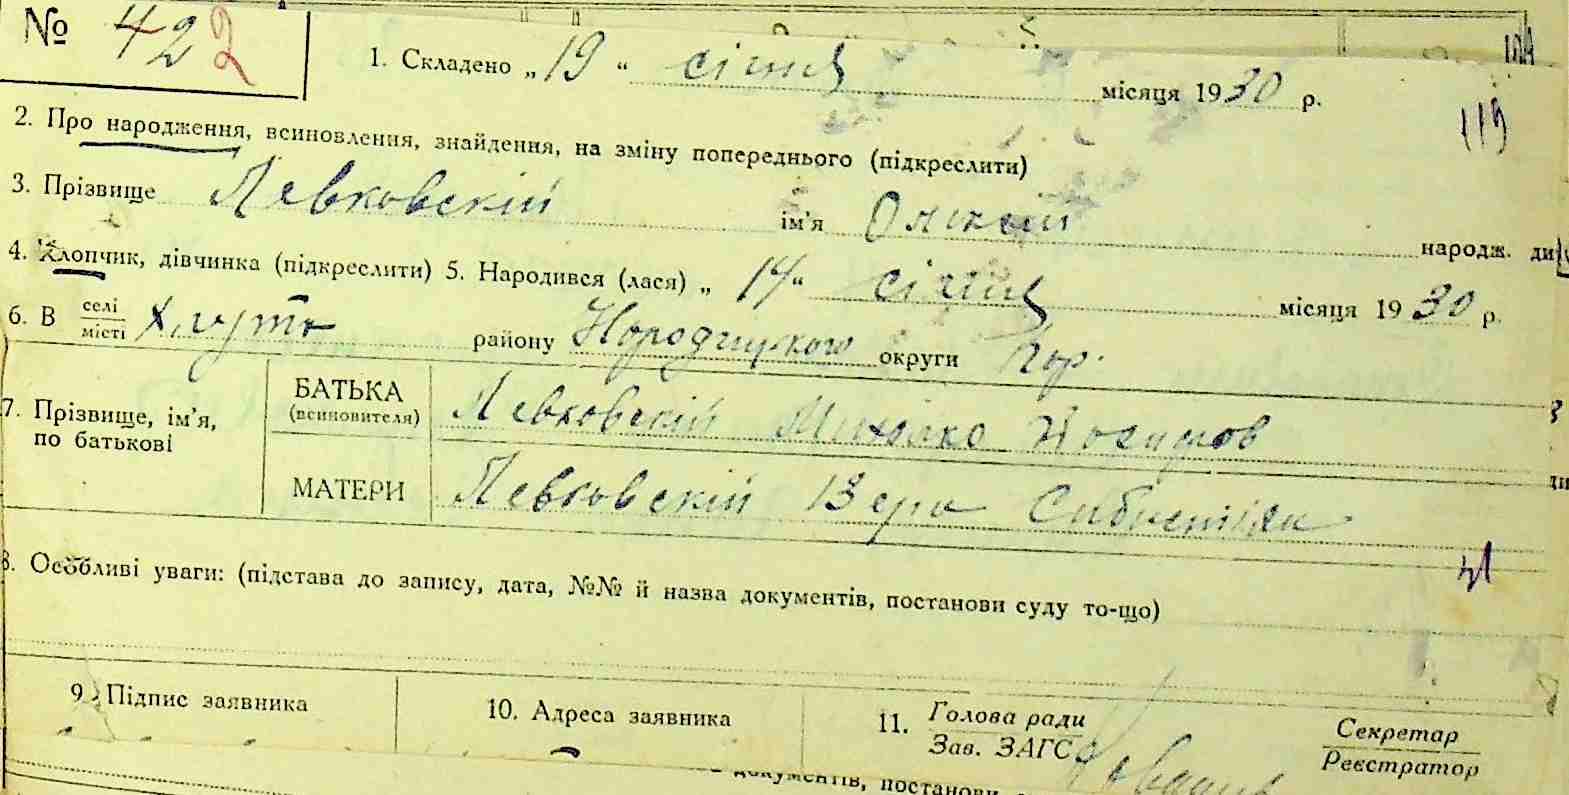 № 422
1. Складено „19“ січня місяця 1930 р.
119
2. Про народження, всиновлення, знайдення, на зміну попереднього (підкреслити)
3. Прізвище Левковскій ім'я Олексій народж. ди
4. Хлопчик, дівчинка (підкреслити) 5. Народився (лася) „14“ січня місяця 1930 р.
6. В селі місті району Народицького округи Кор.
7. Прізвище, ім'я, по батькові
БАТЬКА (всиновителя) Левковскій
МАТЕРИ Левковскій Вера
8. Особливі уваги: (підстава до запису, дата, №№ й назва документів, постанови суду то-що)
9. Підпис заявника 10. Адреса заявника 11. Голова ради Зав. ЗАГС Секретар Реєстратор
документів, постанови